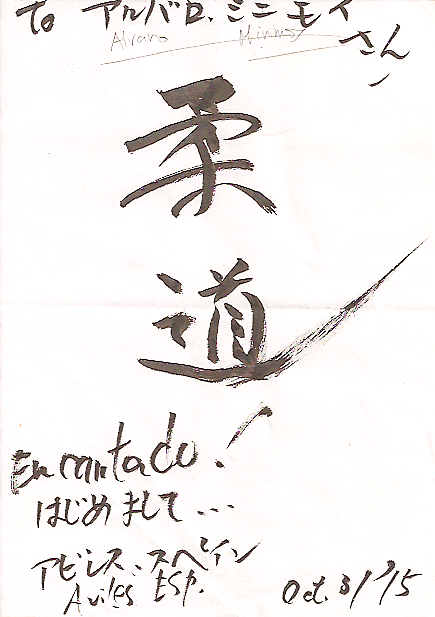 to アルバロ.ミニモイ
Alvaro
さん
柔
道
Encantado!
はじめまして...
アビレス、スペイン
Aviles ESP.
Oct. 3/'15